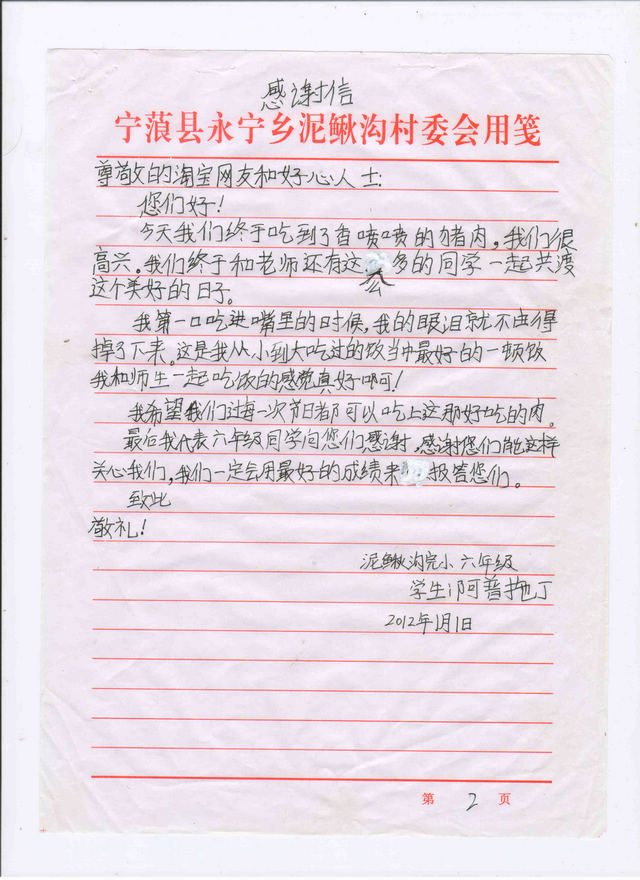 感谢信
宁蒗县永宁乡泥鳅沟村委会用笺
尊敬的淘宝网友和好心人士:
您们好!
今天我们终于吃到了香喷喷的猪肉,我们很
高兴。我们终于和老师还有这么多的同学一起共渡
这个美好的日子。
我第一口吃进嘴里的时候,我的眼泪就不由得
掉了下来。这是我从小到大吃过的饭当中最好的一顿饭
我和师生一起吃饭的感觉真好啊可!
我希望我们过每一次节日都可以吃上这那好吃的肉。
最后我代表六年级同学向您们感谢,感谢您们能这样
关心我们,我们一定会用最好的成绩来报答您们。
致此
敬礼!
泥鳅沟完小六年级
学生:阿普拖丁
2012年1月1日
第 2 页